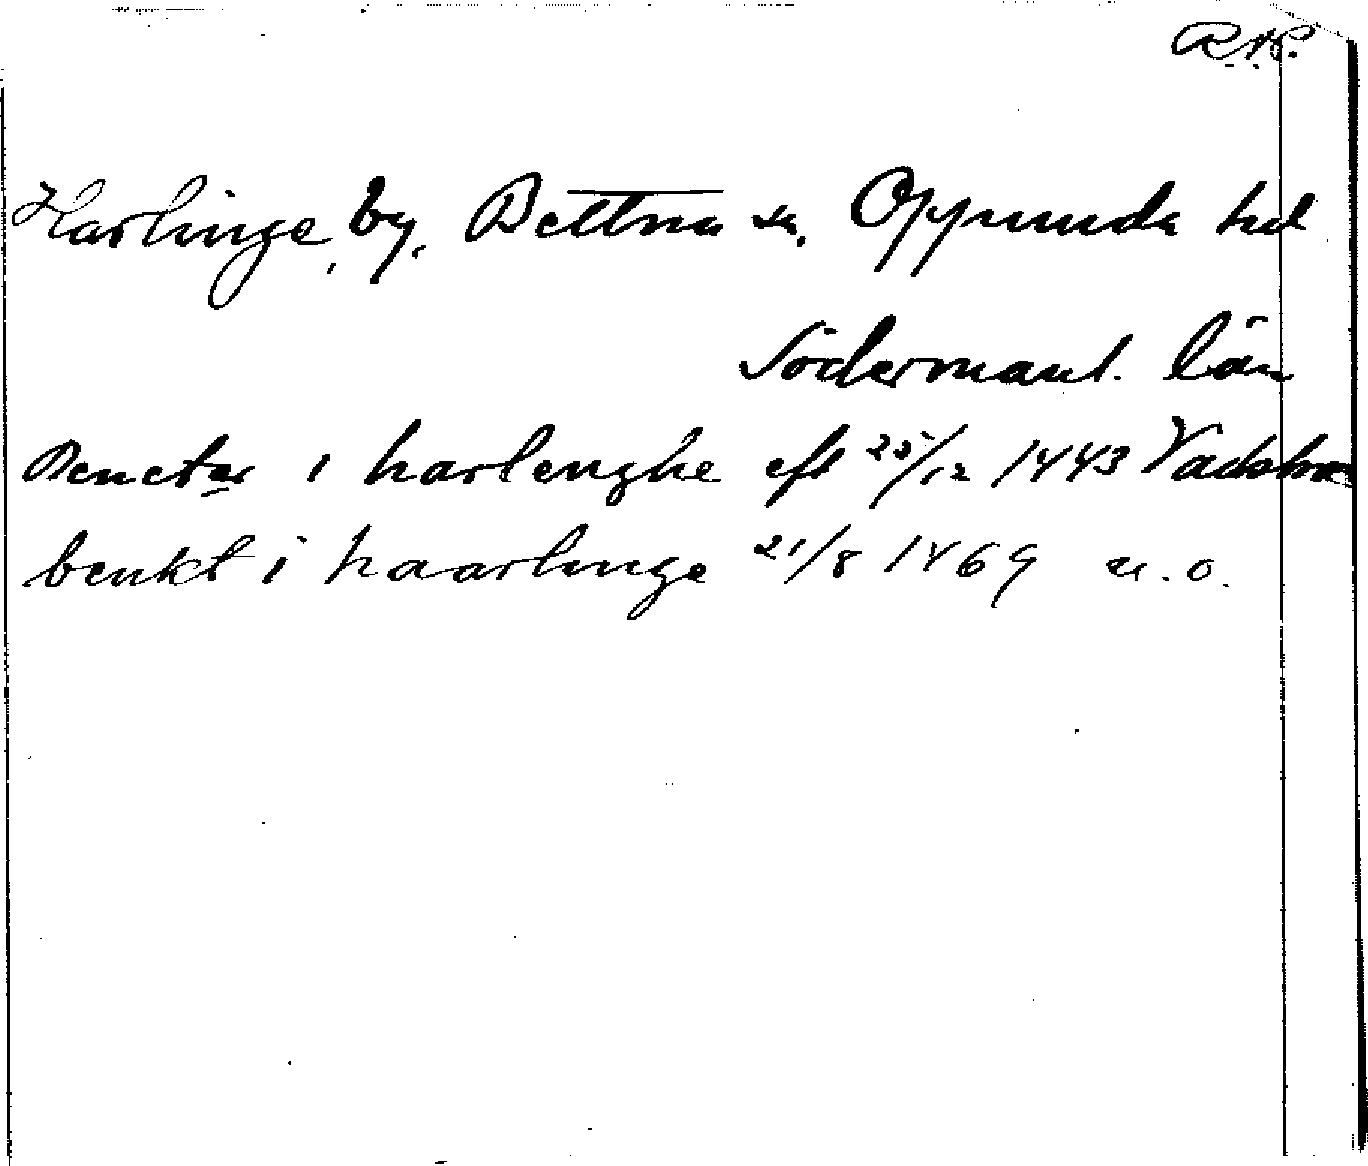 RAP.
Harlinge, by, Bettna sn, Oppunda hd
Södermanl. län
Benctz i harlenghe eft 25/12 1443 Vadstena
benkt i haarlinge 21/8 1469 u.o.